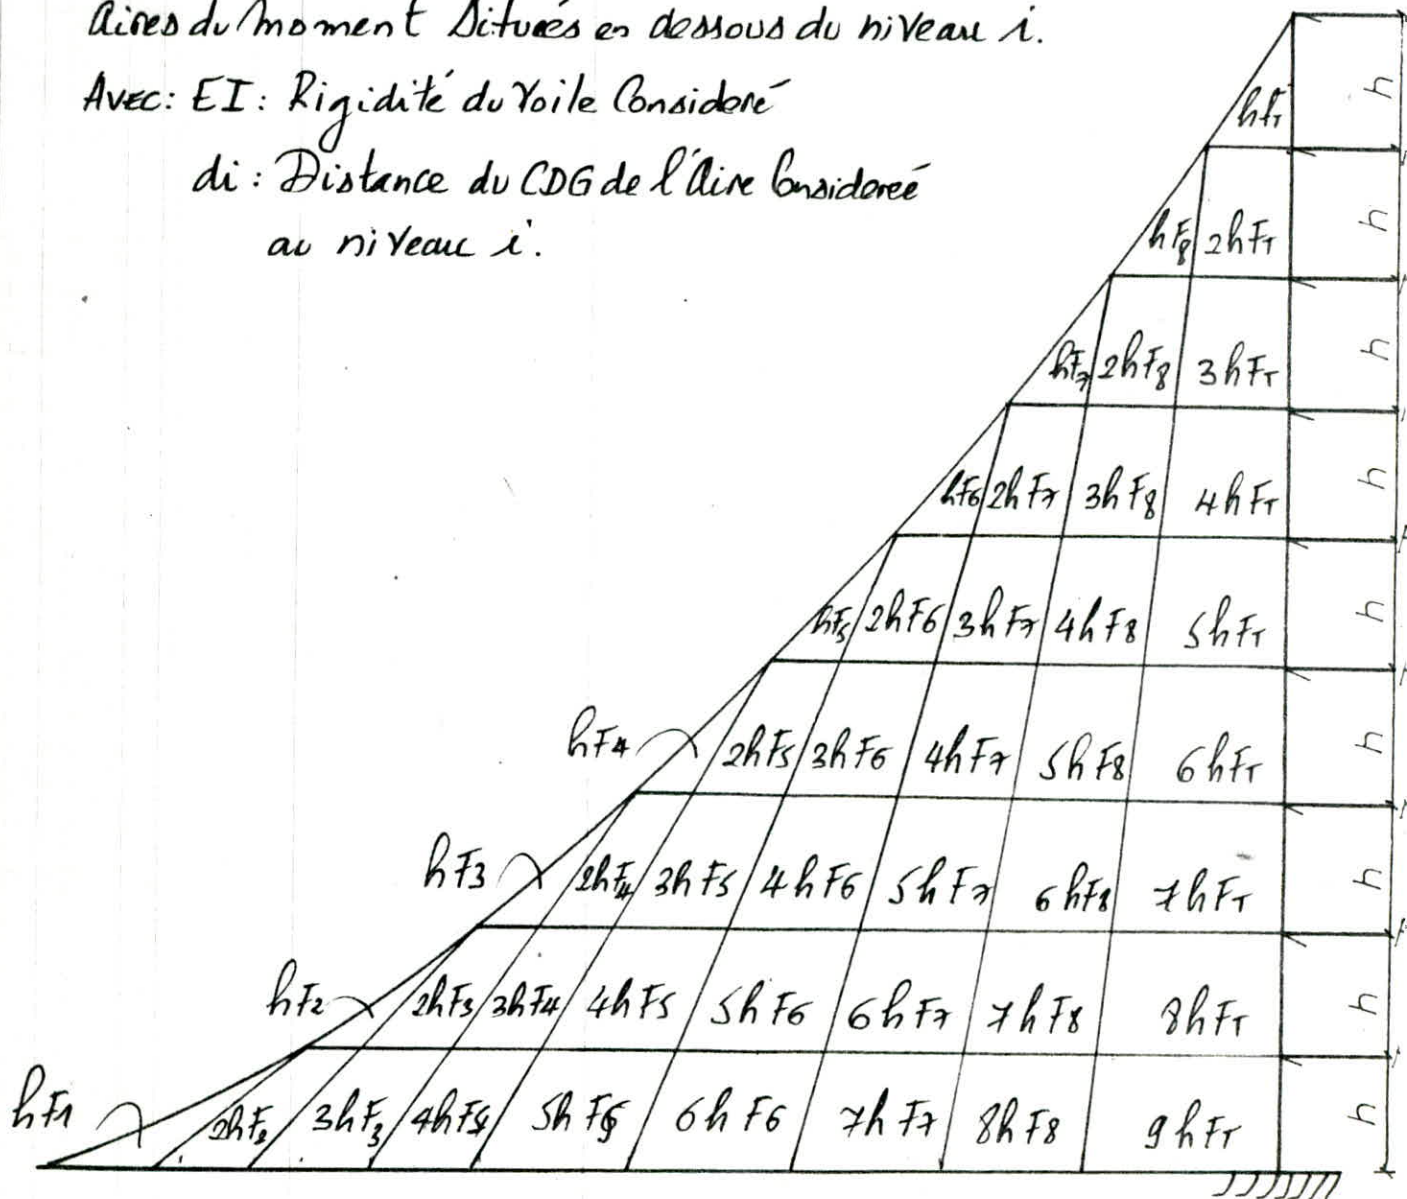 Aires du moment Situeés en dessous du niveau i.
Avec: EI: Rigidité du Voile Consideré
di: Distance du CDG de l'Aire Considereé
au niveau i.
hFT h
hF8 2hFT h
hF7 2hF8 3hFT h
hF6 2hF7 3hF8 4hFT h
hF5 2hF6 3hF7 4hF8 5hFT h
hF4 2hF5 3hF6 4hF7 5hF8 6hFT h
hF3 2hF4 3hF5 4hF6 5hF7 6hF8 7hFT h
hF2 2hF3 3hF4 4hF5 5hF6 6hF7 7hF8 8hFT h
hF1 2hF2 3hF3 4hF4 5hF5 6hF6 7hF7 8hF8 9hFT h